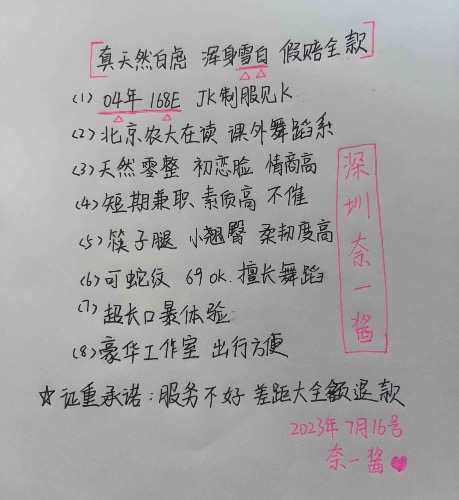 [真天然白虎 浑身雪白 假赔全款]
(1) 04年 168E JK制服见K
(2) 北京农大在读 课外舞蹈系
(3) 天然零整 初恋脸 情商高
(4) 短期兼职、素质高 不催
(5) 筷子腿 小翘臀 柔韧度高
(6) 可蛇纹 69 ok. 擅长舞蹈
(7) 超长口暴体验
(8) 豪华工作室 出行方便
☆证重承诺:服务不好 差距大全额退款
深圳奈一酱
2023年7月16号
奈一酱♥